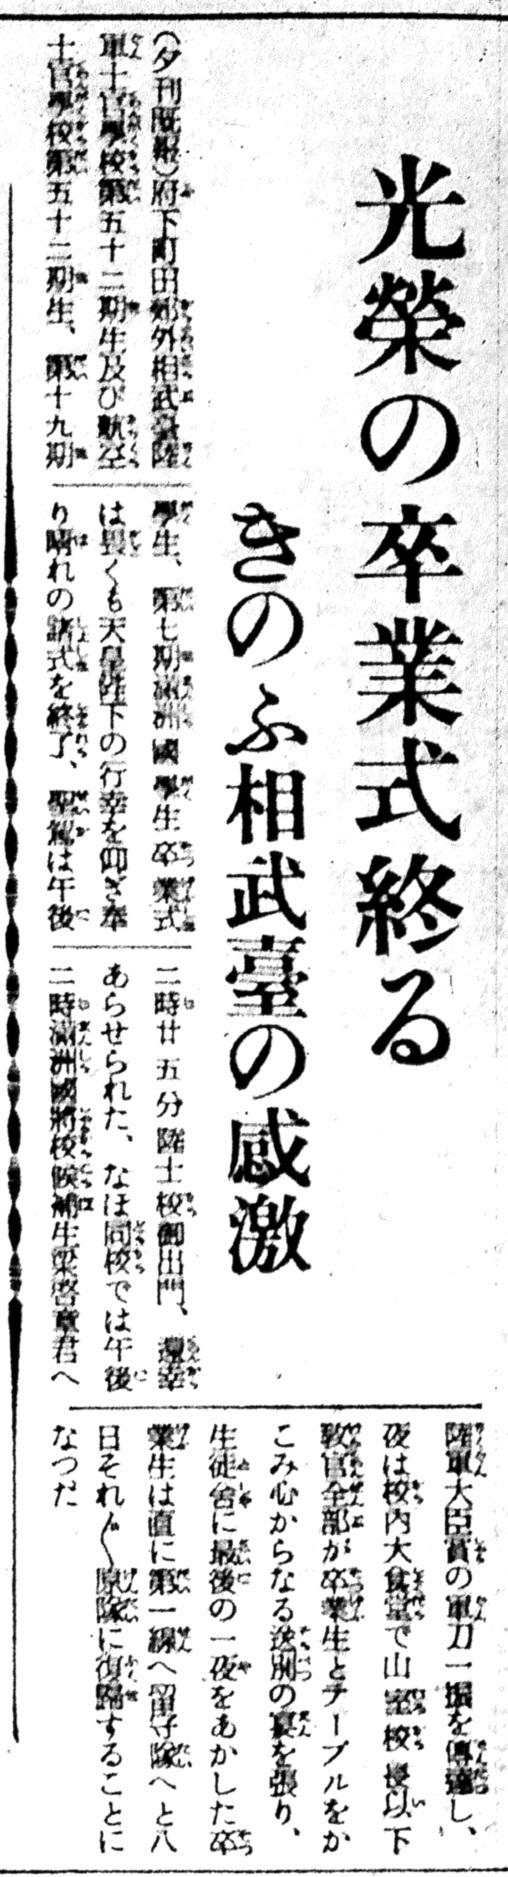 光榮の卒業式終る
きのふ相武臺の感激
(夕刊既報)府下町田郊外相武臺陸
軍士官學校第五十二期生及び航空
士官學校第五十二期生、第十九期
學生、第七期滿洲國學生卒業式
は畏くも天皇陛下の行幸を仰ぎ奉
り晴れの諸式を終了、聖駕は午後
二時廿五分陸士校御出門、還幸
あらせられた、なほ同校では午後
二時滿洲國將校候補生梁啓章君へ
陸軍大臣賞の軍刀一振を傳達し、
夜は校内大食堂で山室校長以下
敎官全部が卒業生とテーブルをか
こみ心からなる送別の宴を張り、
生徒舍に最後の一夜をあかした卒
業生は直に第一線へ留守隊へと八
日それ〴〵原隊に復歸することに
なつた